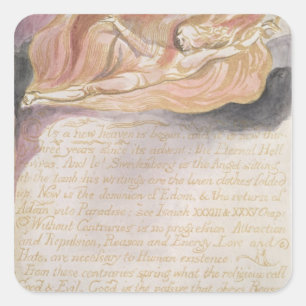 As a new heaven is begun, and it is now thir-
three years since its advent: the Eternal Hell
vives. And lo! Swedenborg is the Angel sitting
at the tomb: his writings are the linen clothes folded
up. Now is the dominion of Edom, & the return of
Adam into Paradise; see Isaiah XXXIV & XXXV Chap:
Without Contraries is no progression. Attraction
and Repulsion, Reason and Energy, Love and
Hate, are necessary to Human existence.
From these contraries spring what the religious call
Good & Evil. Good is the passive that obeys Reason